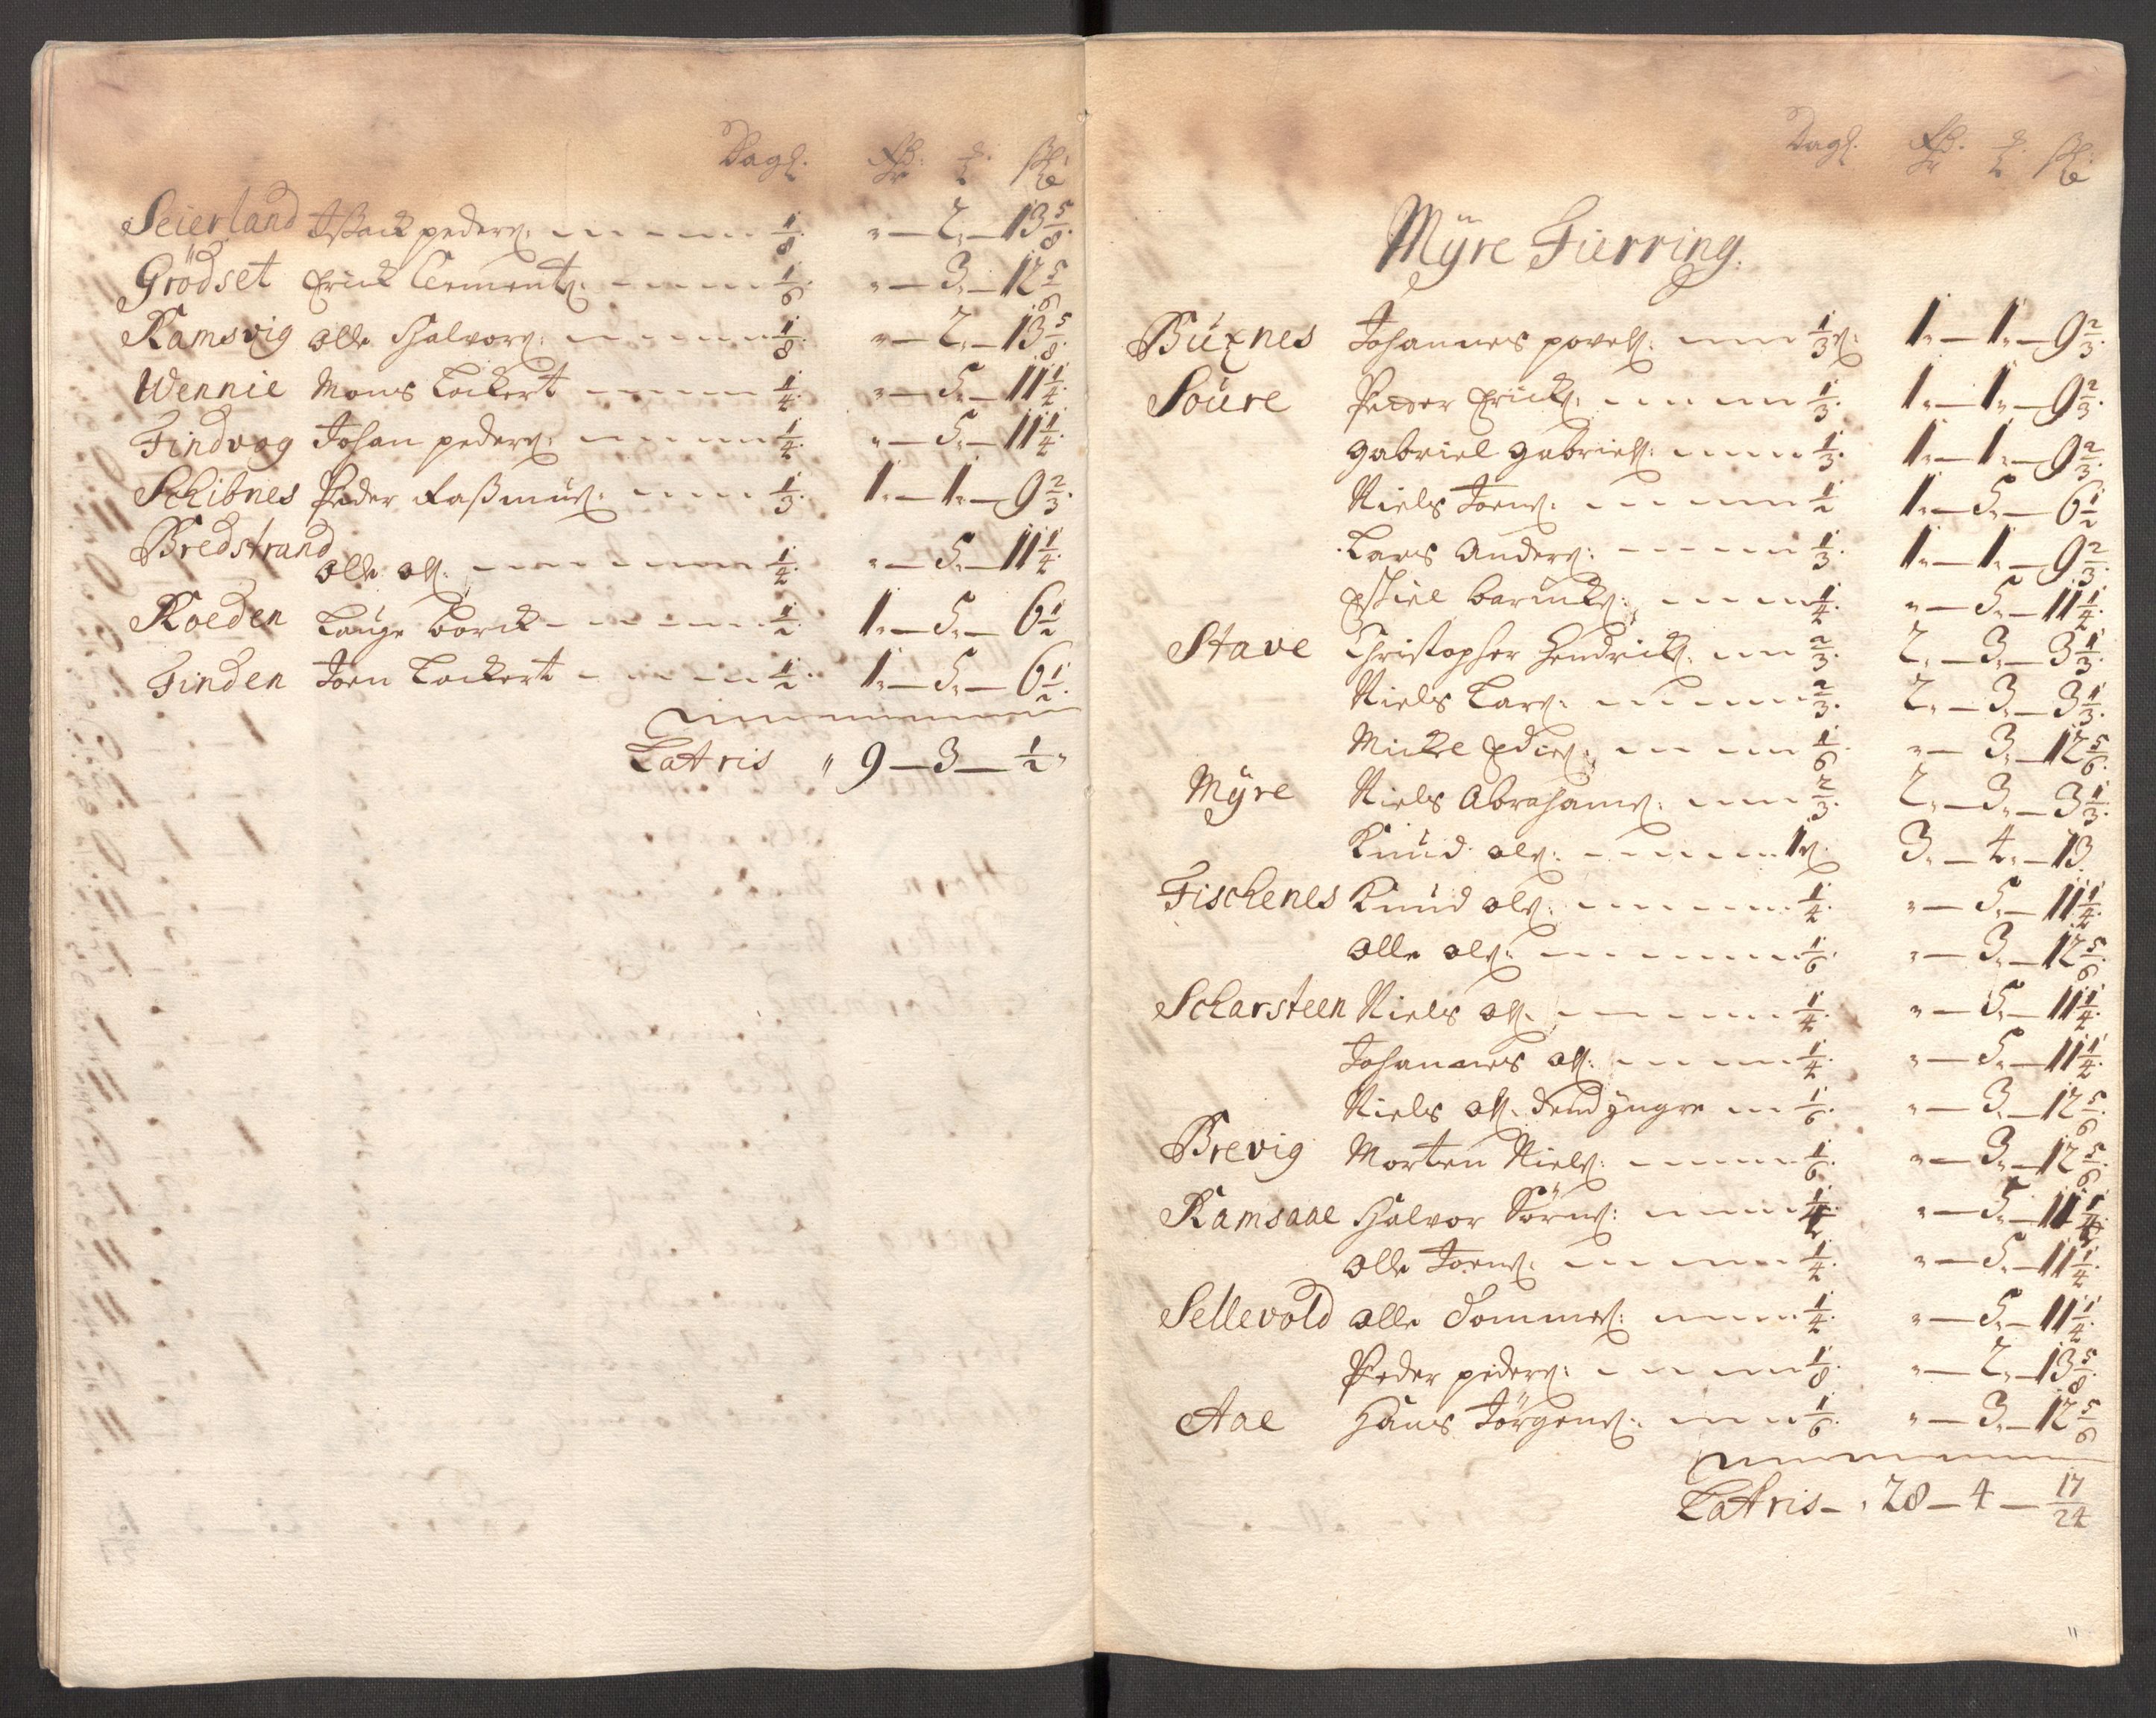 Dagl:
Seierland Jßack peders: 1/8 " — 2 — 13 5/8
Grödset Erick Clements: 1/6 " — 3 — 12 5/6
Ramsvig Olle Halvors: 1/8 " — 2 — 13 5/8
Wennie Mons Lockert 1/4 " — 5 — 11 1/4
Findvog Johan peders: 1/4 " — 5 — 11 1/4
Schibnes Peder Raßmus: 1/3 1 — 1 — 9 2/3
Bredstrand
Olle Ols: 1/4 " — 5 — 11 1/4
Roeden Lauge Borck 1/2 1 — 5 — 6 1/2
Finden Joen Lockert 1/2 1 — 5 — 6 1/2
Latris " 9 — 3 — 1/2 "
Dagl:
Mÿre Fierring.
Buxnes Johannes povels: 1/3 1 — 1 — 9 2/3
Soure Peder Ericks: 1/3 1 — 1 — 9 2/3
gabriel gabriels: 1/3 1 — 1 — 9 2/3
Niels Joens: 1/2 1 — 5 — 6 1/2
Lars Anders: 1/3 1 — 1 — 9 2/3
Eschiel 1/4 " — 5 — 11 1/4
Stave Christopher Hendricks: 2/3 2 — 3 — 3 1/3
Niels Lars: 2/3 2 — 3 — 3 1/3
Mickel 1/6 " — 3 — 12 5/6
Mÿre Niels Abrahams: 2/3 2 — 3 — 3 1/3
Knud Ols: 1 3 — 4 — 13
Fischenes Knud Ols: 1/4 " — 5 — 11 1/4
Olle Ols: 1/6 " — 3 — 12 5/6
Scharsteen Niels Ols: 1/4 " — 5 — 11 1/4
Johannes Ols: 1/4 " — 5 — 11 1/4
Niels Ols: dend ÿngre 1/6 " — 3 — 12 5/6
Brevig Morten Niels: 1/6 " — 3 — 12 5/6
Ramsaae Halvor Sörens: 1/4 " — 5 — 11 1/4
Olle Joens: 1/4 " — 5 — 11 1/4
Sellevold Olle Tommes: 1/4 " — 5 — 11 1/4
Peder peders: 1/8 " — 2 — 13 5/8
Aae Hans Jörgens: 1/6 " — 3 — 12 5/6
Latris — 28 — 4 — 17/24